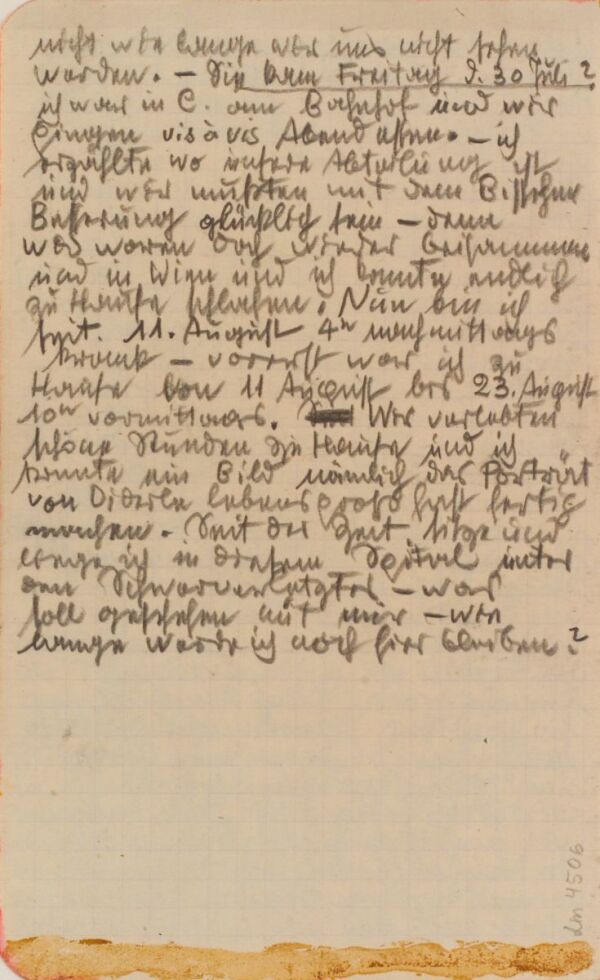 nicht wie lange wir uns nicht sehen
werden. – Sie kam Freitag d. 30 Juli?
ich war in C. am Bahnhof und wir
gingen vis à vis Abendessen. – ich
erzählte wo unsere Abteilung ist
und wir mußten mit dem Bisschen
Besserung glücklich sein – denn
wir waren doch wieder beisammen
und in Wien und ich konnte endlich
zu Hause schlafen. Nun bin ich
seit. 11. August 4h nachmittags
krank – vorerst war ich zu
Hause von 11 August bis 23. August
10h vormittags. Wir verlebten
schöne Stunden zu Hause und ich
konnte ein Bild nämlich das Porträt
von Diderle lebensgroß fast fertig
machen. – Seit der Zeit sitze und
liege ich in diesem Spital unter
den Schwerverletzten – was
soll geschehen mit mir – wie
lange werde ich noch hier bleiben?
lm 4506